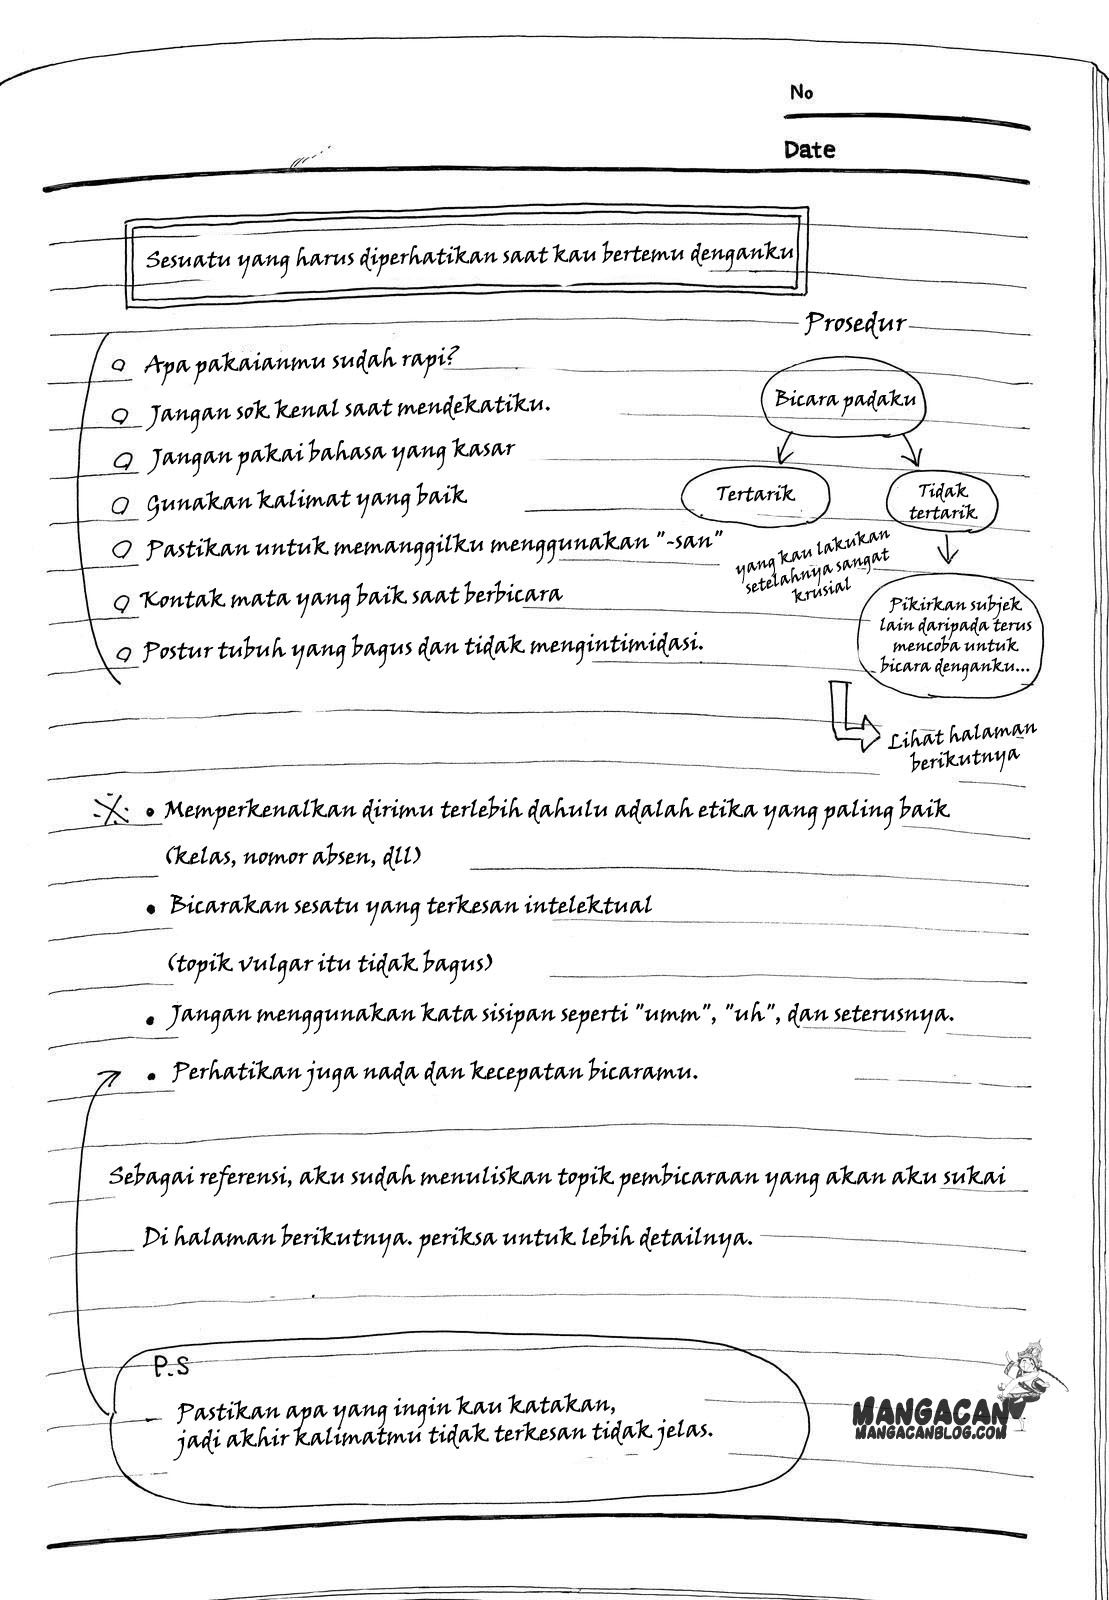 No
Date
Sesuatu yang harus diperhatikan saat kau bertemu denganku
Apa pakaianmu sudah rapi?
Jangan sok kenal saat mendekatiku.
Jangan pakai bahasa yang kasar
Gunakan kalimat yang baik
Pastikan untuk memanggilku menggunakan "-san"
Kontak mata yang baik saat berbicara
Postur tubuh yang bagus dan tidak mengintimidasi.
Prosedur
Bicara padaku
Tertarik
Tidak
tertarik
yang kau lakukan
setelahnya sangat
krusial
Pikirkan subjek
lain daripada terus
mencoba untuk
bicara denganku...
Lihat halaman
berikutnya
※ • Memperkenalkan dirimu terlebih dahulu adalah etika yang paling baik
(kelas, nomor absen, dll)
• Bicarakan sesatu yang terkesan intelektual
(topik vulgar itu tidak bagus)
• Jangan menggunakan kata sisipan seperti "umm", "uh", dan seterusnya.
• Perhatikan juga nada dan kecepatan bicaramu.
Sebagai referensi, aku sudah menuliskan topik pembicaraan yang akan aku sukai
Di halaman berikutnya. periksa untuk lebih detailnya.
P.S
Pastikan apa yang ingin kau katakan,
jadi akhir kalimatmu tidak terkesan tidak jelas.
MANGACAN
MANGACANBLOG.COM